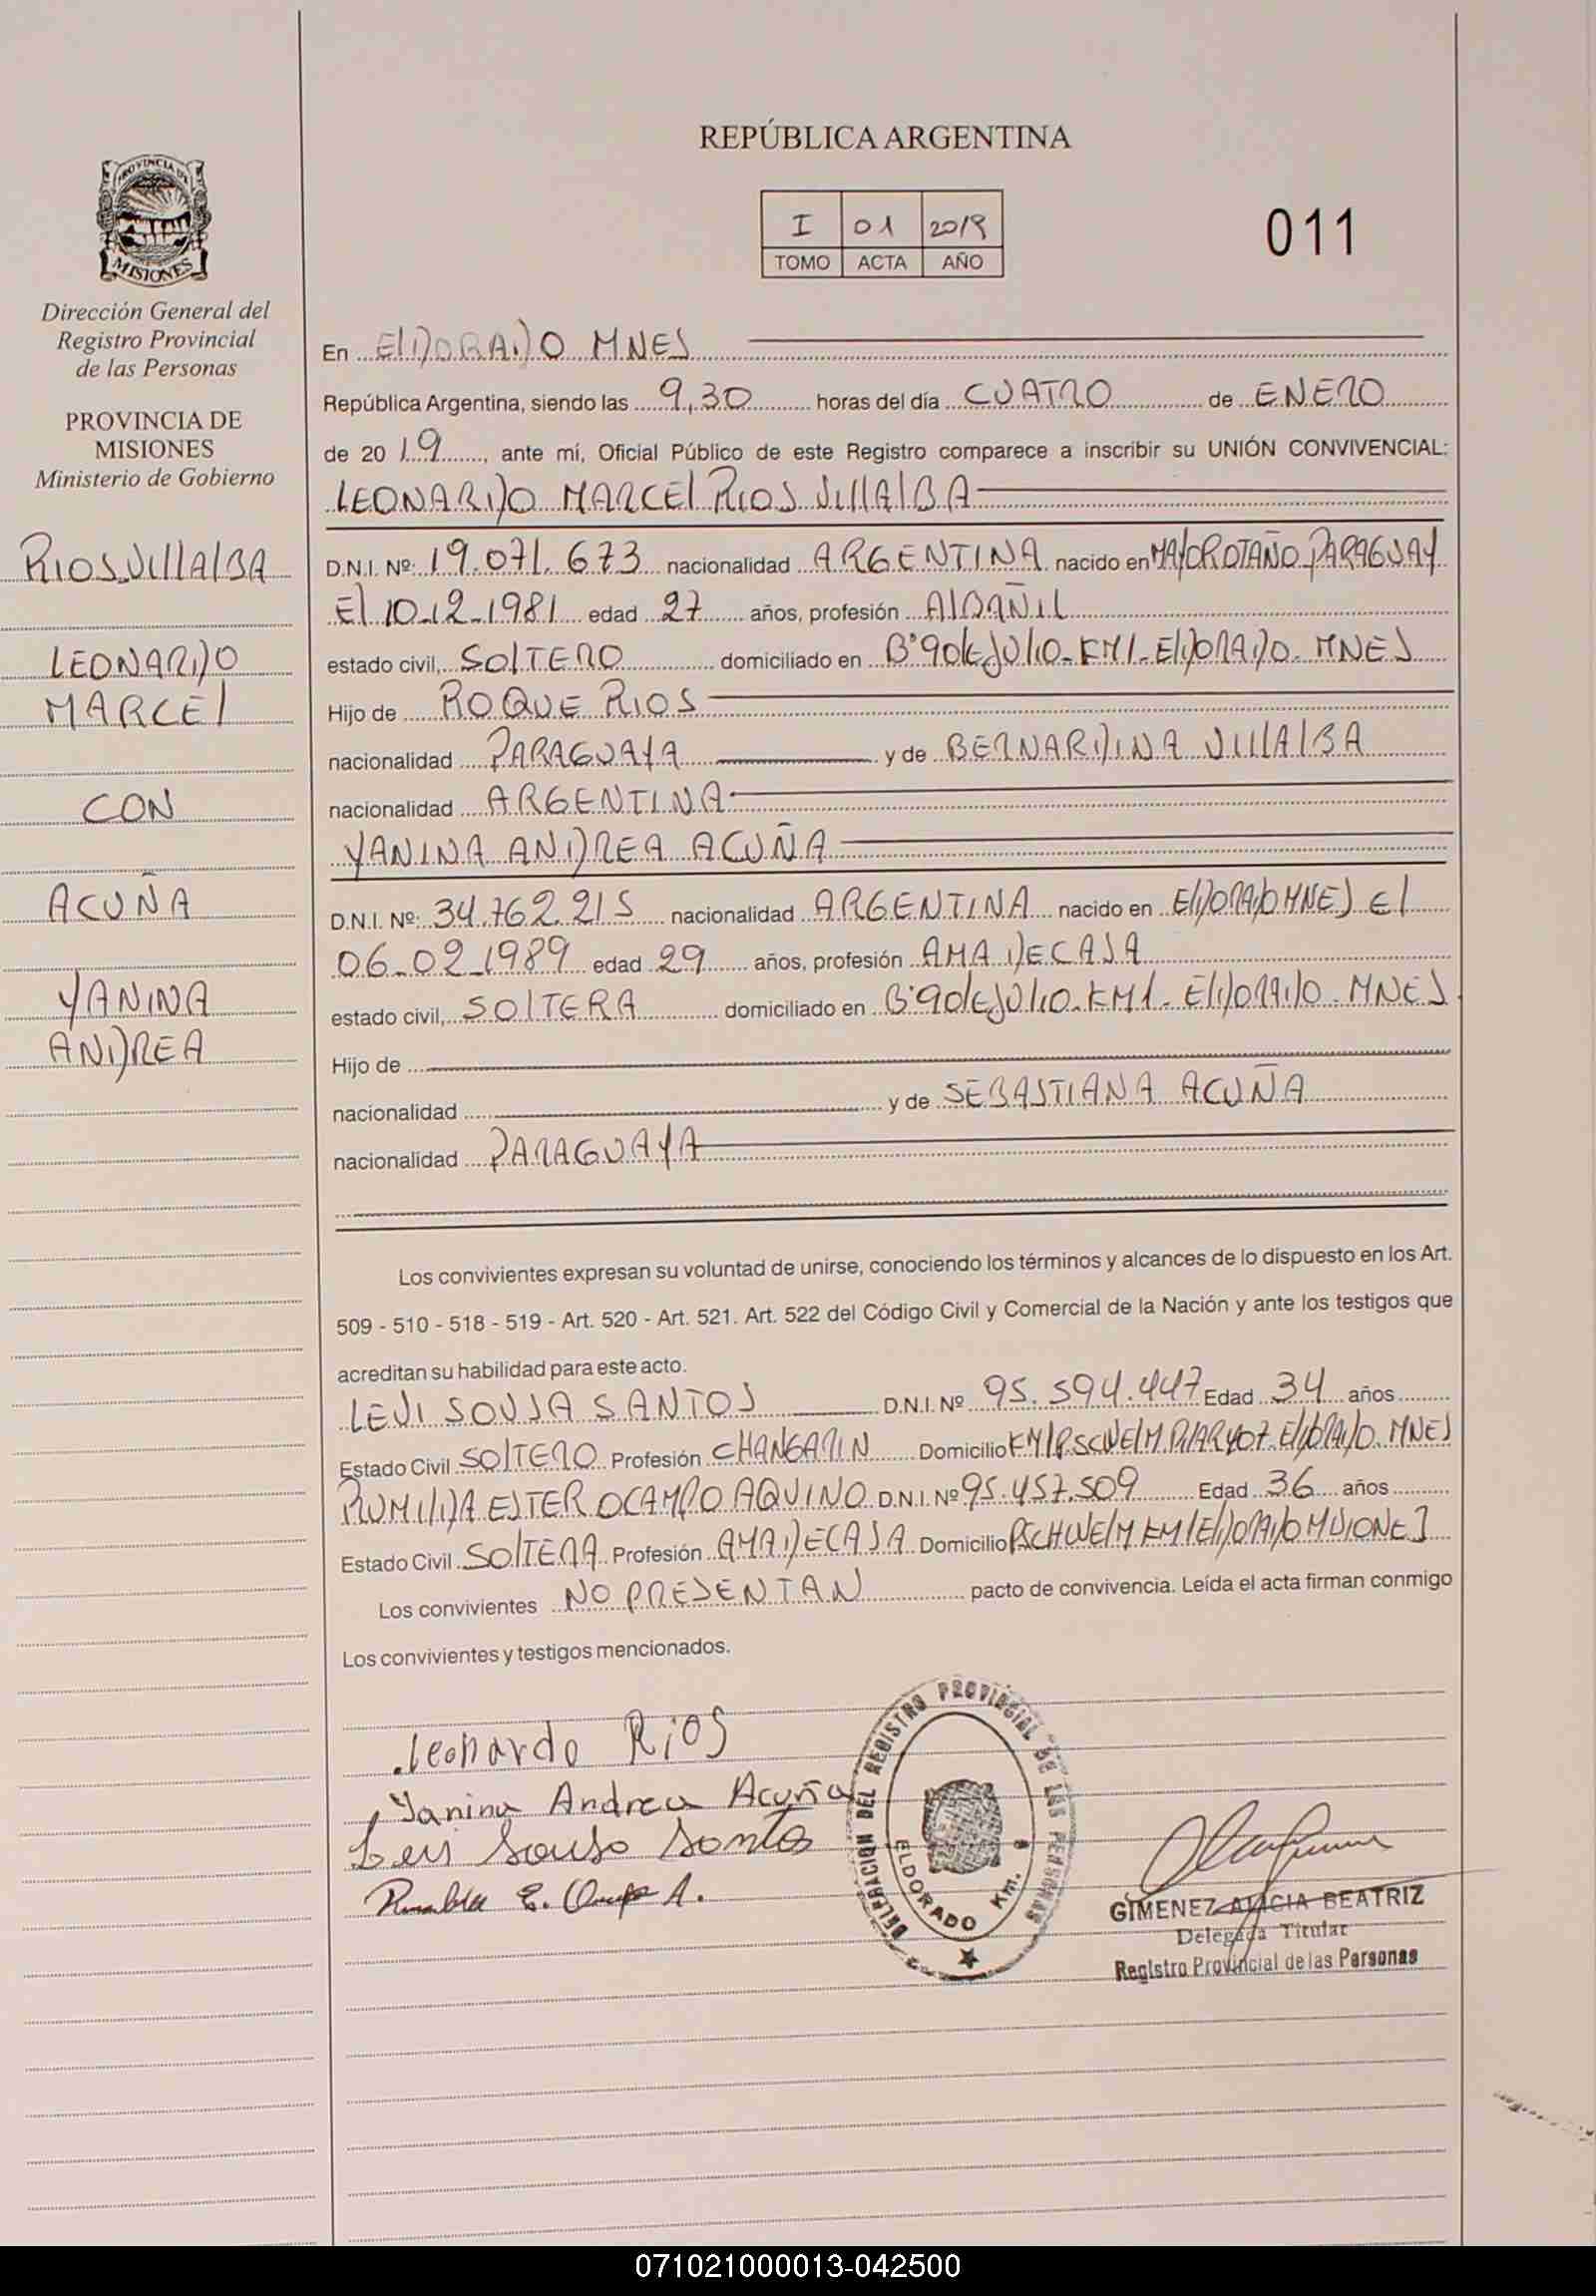 REPÚBLICA ARGENTINA
I 01 2019
TOMO ACTA AÑO
011
PROVINCIA DE
MISIONES
Dirección General del
Registro Provincial
de las Personas
PROVINCIA DE
MISIONES
Ministerio de Gobierno
RIOS VIllAlBA
LEONARDO
MARCEl
CON
ACUÑA
YANINA
ANDREA
En ElDORADO MNES
República Argentina, siendo las 9,30 horas del día CUATRO de ENERO
de 2019, ante mí, Oficial Público de este Registro comparece a inscribir su UNIÓN CONVIVENCIAL:
LEONARDO MARCEl RIOS VIllAlBA
D.N.I. Nº: 19.071.673 nacionalidad ARGENTINA nacido en MAYOR OTAÑO PARAGUAY
El 10-12-1981 edad 27 años, profesión AlBAÑIL
estado civil, SOlTERO domiciliado en Bº 9 de JUlIO-KM1-ElDORADO-MNES
Hijo de ROQUE RIOS
nacionalidad PARAGUAYA y de BERNARDINA VIllAlBA
nacionalidad ARGENTINA
YANINA ANDREA ACUÑA
D.N.I. Nº: 34.762.215 nacionalidad ARGENTINA nacido en ElDORADO MNES El
06-02-1989 edad 29 años, profesión AMA DE CASA
estado civil, SOlTERA domiciliado en Bº 9 de JUlIO-KM1-ElDORADO-MNES
Hijo de
nacionalidad y de SEBASTIANA ACUÑA
nacionalidad PARAGUAYA
Los convivientes expresan su voluntad de unirse, conociendo los términos y alcances de lo dispuesto en los Art.
509 - 510 - 518 - 519 - Art. 520 - Art. 521. Art. 522 del Código Civil y Comercial de la Nación y ante los testigos que
acreditan su habilidad para este acto.
LEVI SOUSA SANTOS D.N.I. Nº 95.594.447 Edad 34 años
Estado Civil SOlTERO Profesión CHANGARIN Domicilio ElDORADO. MNES
RUMIlDA ESTER OCAMPO AQUINO D.N.I. Nº 95.457.509 Edad 36 años
Estado Civil SOlTERA Profesión AMA DE CASA Domicilio ElDORADO MISIONES
Los convivientes NO PRESENTAN pacto de convivencia. Leída el acta firman conmigo
Los convivientes y testigos mencionados.
Leonardo Rios
Yanina Andrea Acuña
Levi Souso Santos
DELEGACION DEL REGISTRO PROVINCIAL DE LAS PERSONAS
ELDORADO Km.
GIMENEZ ALICIA BEATRIZ
Delegada Titular
Registro Provincial de las Personas
071021000013-042500